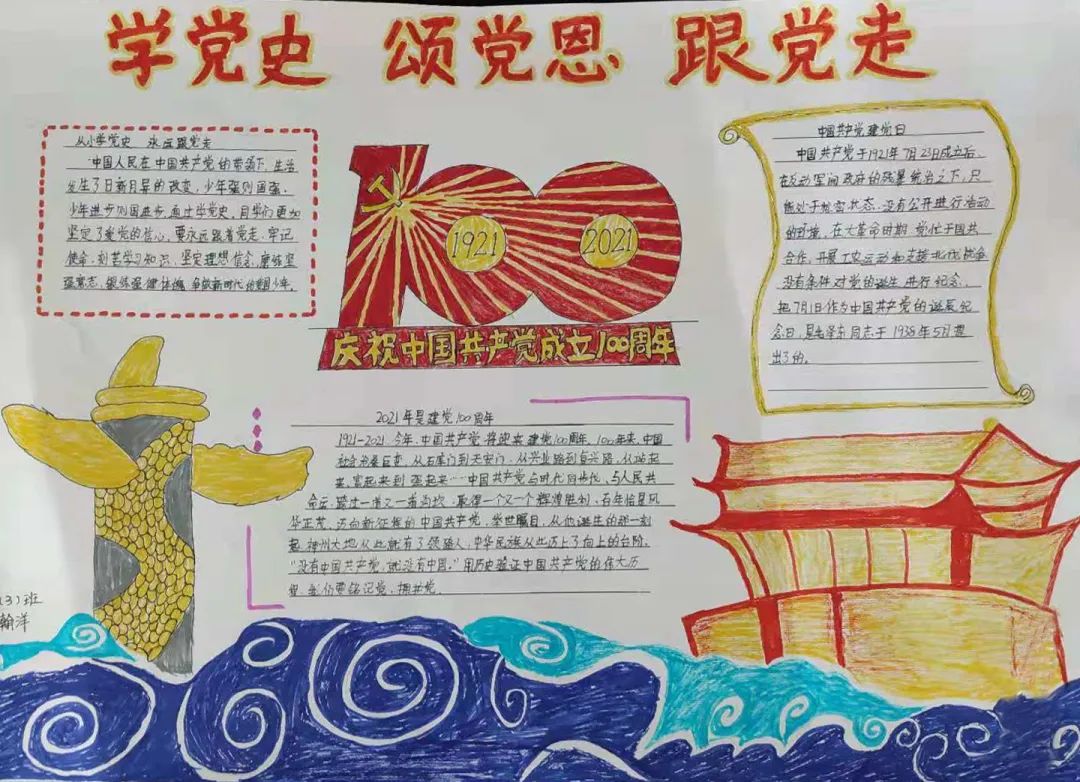 学党史 颂党恩 跟党走
从小学党史 永远跟党走
中国人民在中国共产党的带领下,生活
发生了日新月异的改变,少年强则国强,
少年进步则国进步,通过学党史,同学们更加
坚定了爱党的信心,要永远跟着党走,牢记
使命,刻苦学习知识,坚定理想信念,磨练坚
强意志,锻练强健体魄,争做新时代的好少年。
1921
2021
庆祝中国共产党成立100周年
中国共产党建党日
中国共产党于1921年7月23日成立后,
在反动军阀政府的残暴统治之下,只
能处于秘密状态,没有公开进行活动
的环境,在大革命时期,党忙于国共
合作,开展工农运动和支援北伐战争
没有条件对党的诞生进行纪念,
把7月1日作为中国共产党的诞辰纪
念日,是毛泽东同志于1938年5月提
出了的。
2021年是建党100周年
1921-2021今年,中国共产党将迎来建党100周年,100年来,中国
社会沧桑巨变,从石库门到天安门,从兴业路到复兴路,从站起
来,富起来到强起来……中国共产党与时代同步伐,与人民共
命运,跨过一道又一道沟坎,取得一个又一个辉煌胜利,百年恰是风
华正茂,迈向新征程的中国共产党,举世瞩目,从他诞生的那一刻
起,神州大地从此就有了领路人,中华民族从此迈上了向上的台阶,
“没有中国共产党,就没有中国。”用历史验证中国共产党的伟大历
程,我们要铭记党,拥护党.
(3)班
翰洋